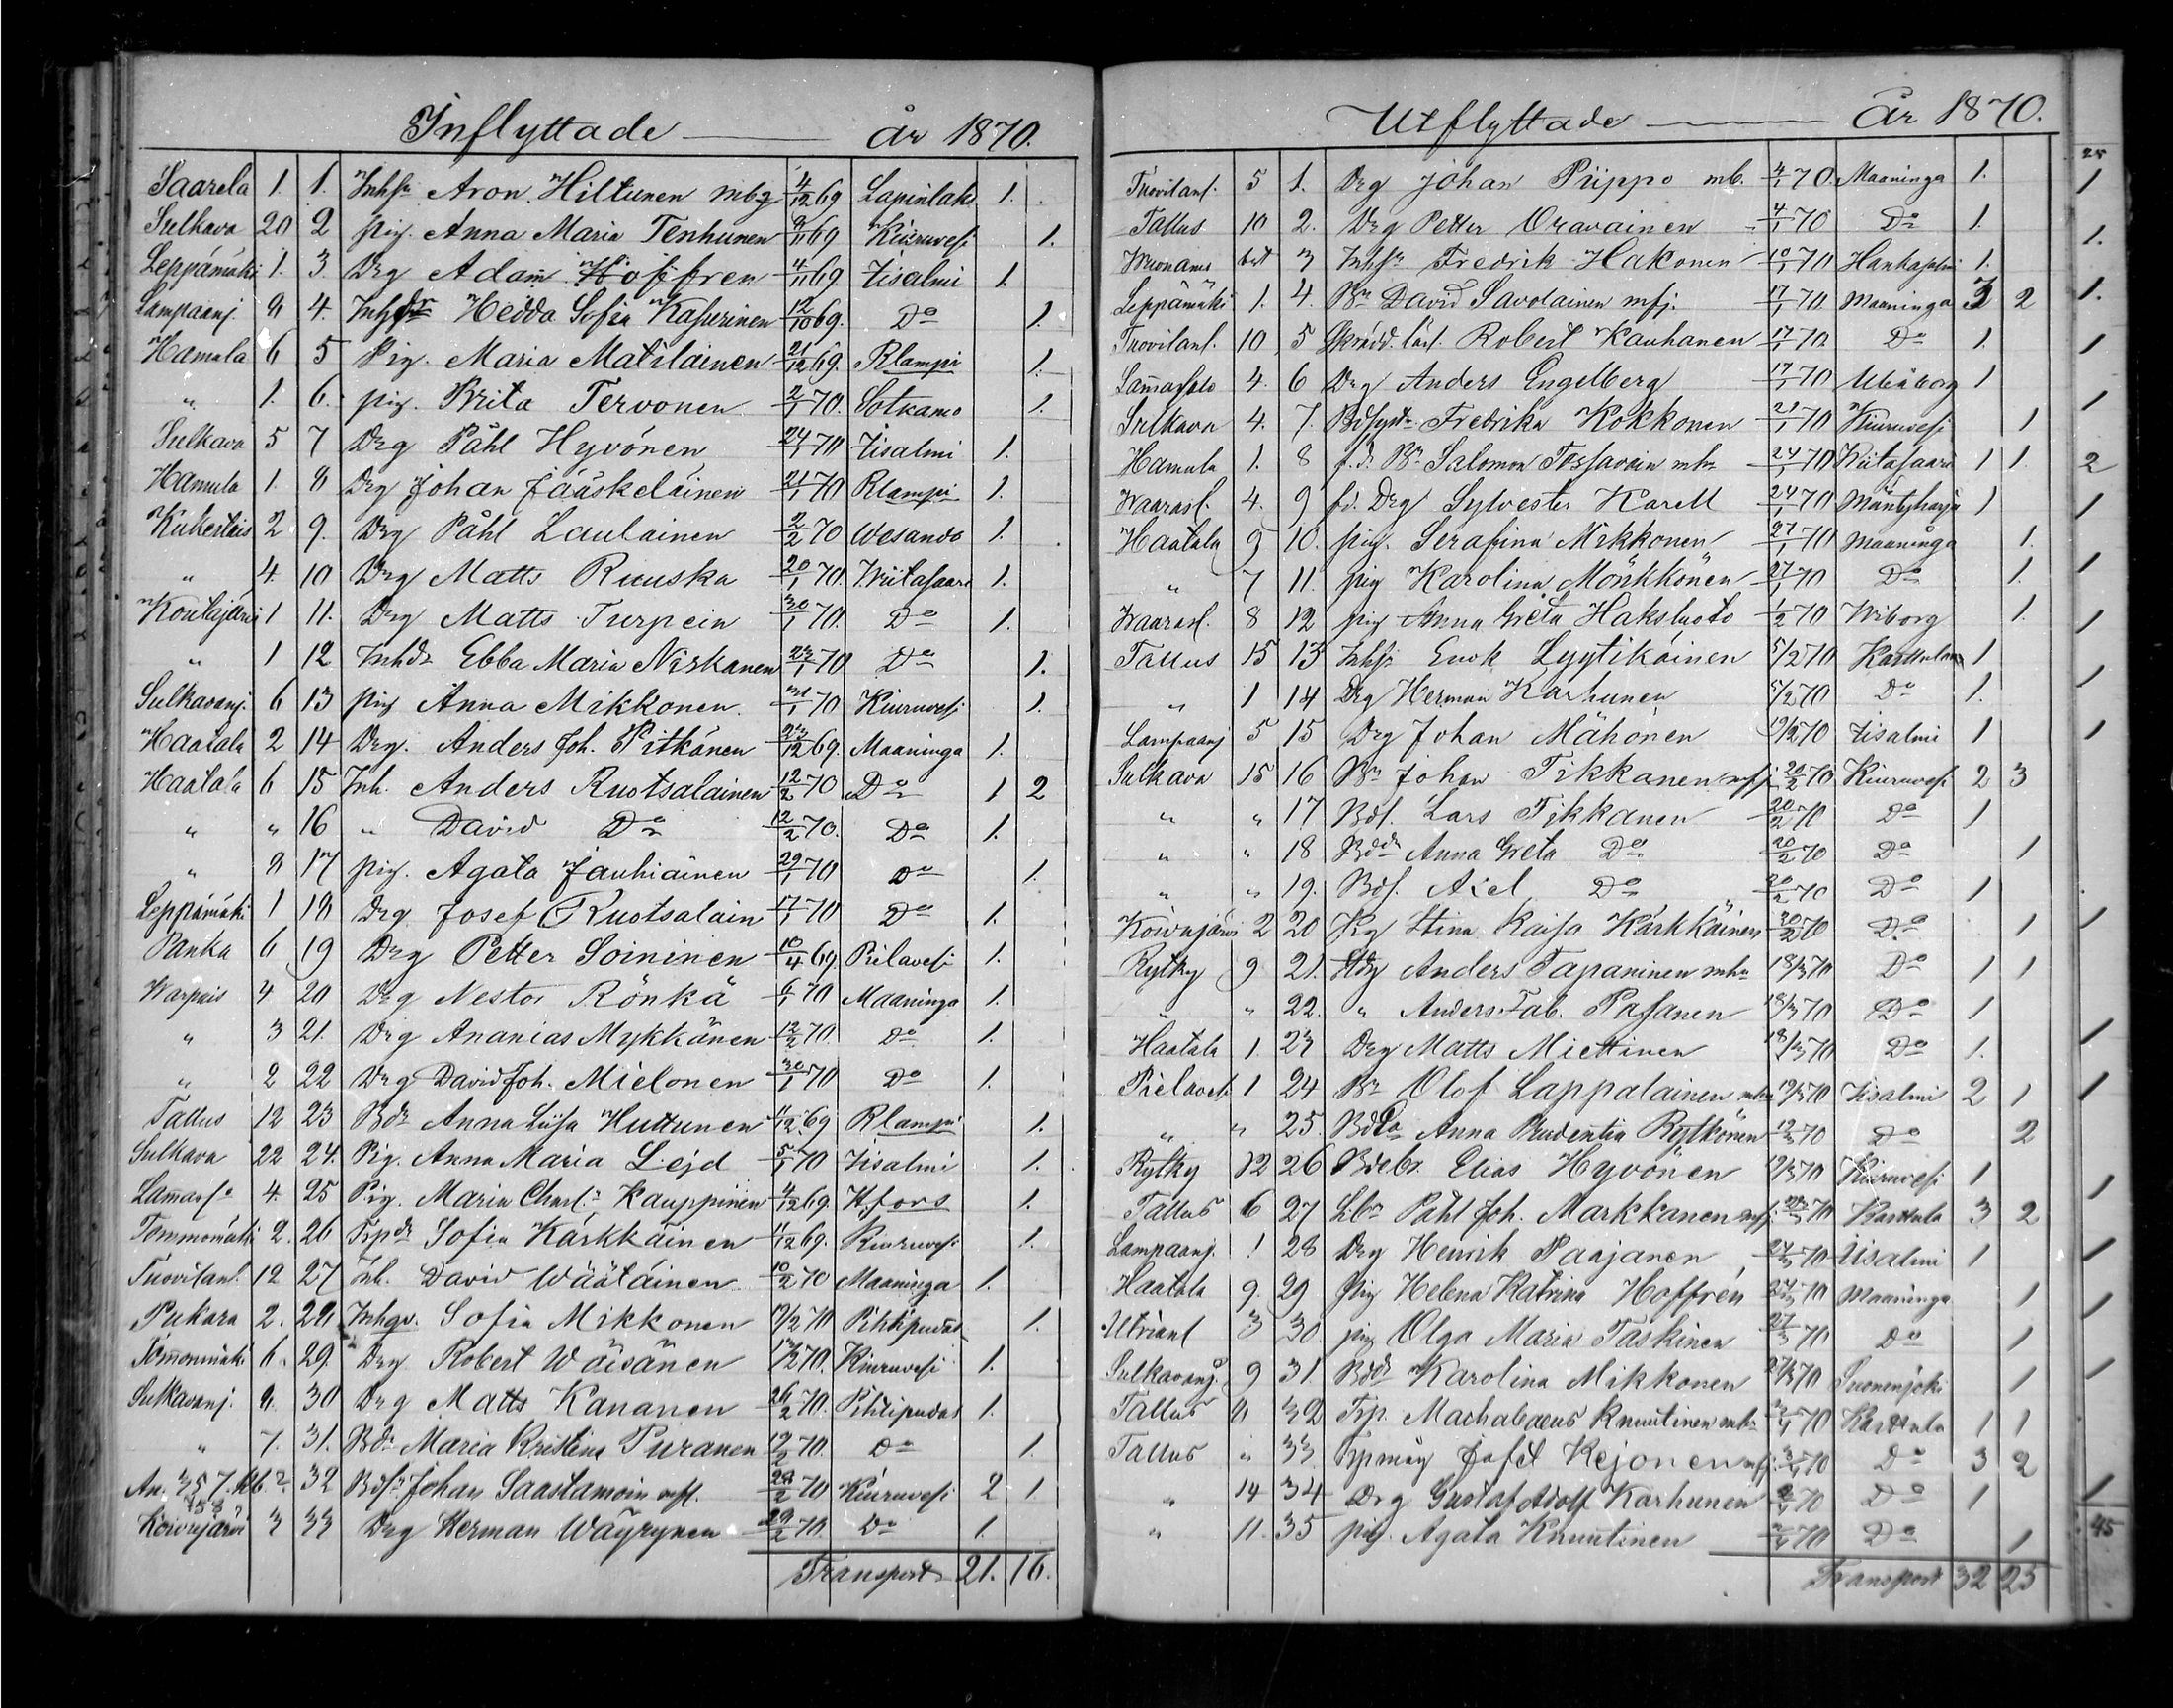 Inflyttade år 1870.
Saarela 1. 1. Inhs. Aron Hiltunen mbg 4/12 69 Lapinlaks 1.
Sulkava 20 2 pig. Anna Maria Tenhunen 9/11 69 Kiuruvesi 1.
Leppämäki 1. 3. Drg Adam Hoffren 4/11 69 Iisalmi 1.
Lampaanj. 9 4. Inhdr Hedda Sofia Kasurinen 12/10 69. Do 1.
Hamula 6 5 Pig. Maria Matilainen 21/12 69. Rlampi 1.
" 1. 6. pig. Brita Tervonen 2/1 70. Sotkamo 1.
Sulkava 5 7 Drg Påhl Hyvönen 24/1 70 Iisalmi 1.
Hamula 1. 8 Drg Johan Jääskeläinen 21/1 70 Rlampi 1.
2 9. Drg Påhl Laulainen 2/2 70 Wesando 1.
" 4. 10 Drg Matts Ruuska 20/1 70. Wiitasaari 1.
Koutajärvi 1 11. Drg Matts Turpein 30/1 70. Do 1.
" 1 12 Inhdr Ebba Maria Niskanen 23/1 70 Do 1.
Sulkavanj. 6 13 pig Anna Mikkonen. 31/1 70 Kiuruvesi 1.
Haatala 2 14 Drg. Anders Joh. Pitkänen 23/12 69. Maaninga 1.
Haatala 6 15 Inh. Anders Ruotsalainen 12/2 70 Do 1 2
" " 16 " David Do 12/2 70. Do 1.
" 8 17 pig. Agata Jauhiainen 29/1 70 Do 1.
Leppämäki 1 18 Drg Josef Ruotsalain 17/1 70 Do 1.
Panka 6 19 Drg Petter Soininen 10/4 69. Pielavesi 1.
Warpais 4 20 Drg Nestor Rönkä 6/1 70 Maaninga 1.
" 3 21. Drg Ananias Mykkänen 12/2 70. Do 1.
" 2 22 Drg David Joh. Mielonen 30/1 70 Do 1.
Tallus 12 23 Bdr Anna Liisa Huttunen 11/12 69 Rlampi 1.
Sulkava 22 24. Pig. Anna Maria Lejd 5/1 70 Iisalmi 1.
4. 25 Pig. Maria Charl. Kauppinen 4/12 69. Hfors 1.
Tommomäki 2. 26 Trpdr Sofia Kärkkäinen 11/12 69. Kiuruvesi 1.
Tuovilanl. 12 27 Inh. David Wäätäinen 10/2 70 Maaninga 1.
Pukara 2. 28. Sofia Mikkonen 19/2 70 Pihtipudas 1.
Tommomäki 6. 29. Drg Robert Wäisänen 13/2 70. Kiuruvesi 1.
Sulkavanj. 9. 30 Drg Matts Kananen 26/2 70. Pihtipudas 1.
" 7. 31. Bdr Maria Kristina Puranen 12/2 70. Do 1.
An. 357. 32 Bdsr Johan Saastamoin mfl. 28/2 70 Kiuruvesi 2 1
358
Koivujärvi 3 33 Drg Herman Wäyrynen 29/2 70 Do 1.
Transport 21. 16.
Utflyttade År 1870.
Tuovilanl. 5 1. Drg Johan Piippo mb. 4/1 70. Maaninga 1.
Tallus 10 2. Drg Petter Oravainen 4/1 70 Do 1.
3 Inhsr Fredrik Hakonen 10/1 70 Hankasalmi 1.
Leppämäki 1. 4. Br David Savolainen mfj. 17/1 70. Maaninga 3 2
Tuovilanl. 10 5 Skrädd. lärl. Robert Kauhanen 17/1 70 Do 1.
4. 6 Drg Anders Engelberg 17/1 70 Uleåborg 1
Sulkava 4. 7. Fredrika Kokkonen 21/1 70 Kiuruvesi 1
Hamula 1. 8 f.d. Br Salomon Tossavain mhu 24/1 70 Wiitasaari 1 1.
Waarasl. 4. 9 fd. Drg Sylvester Karell 24/1 70 Mäntyharju 1
Haatala 9 10. pig. Serafina Mikkonen 27/1 70 Maaninga 1.
" 7 11. pig Karolina Mönkkönen 27/1 70 Do 1.
Waarasl. 8 12 pig Anna Greta Haksluoto 1/2 70 Wiborg 1.
Tallus 15 13 Inhsr Enok Lyytikäinen 5/2 70 Karttula 1
" 1 14 Drg Herman Karhunen 5/2 70 Do 1.
Lampaanj 5 15 Drg Johan Mähönen 19/2 70 Iisalmi 1
Sulkava 15 16 Br Johan Tikkanen mfj 20/2 70 Kiuruvesi 2 3
" " 17 Bds. Lars Tikkanen 20/2 70 Do 1
" " 18 Bddr Anna Greta Do 20/2 70 Do 1
" " 19. Bds. Axel Do 20/2 70 Do 1
Koivujärvi 2 20 Pig Stina Kaisa Kärkkäinen 20/2 70 Do 1
Rytky 9 21. Anders Tapaninen mhu 18/3 70 Do 1 1
" " 22. " Anders Fab. Pasanen 18/3 70 Do 1
Haatala 1. 23 Drg Matts Miettinen 18/3 70 Do 1.
Pielavesi 1 24 Br Olof Lappalainen mhu 19/3 70 Iisalmi 2 1
" " 25. Anna Prudentia Rytkönen 19/3 70 Do 2
Rytky 12 26 Bdebr. Elias Hyvönen 19/3 70 Kiuruvesi 1
Tallus 6 27 Lbr Påhl Joh. Markkanen mfj. 23/3 70 Karttula 3 2
Lampaanj. 1 28 Drg Henrik Paajanen 24/3 70 Iisalmi 1
Haatala 9. 29 pig Helena Katrina Hoffrén 27/3 70 Maaninga 1
Utrianl 3 30. pig Olga Maria Taskinen 27/3 70 Do 1
Sulkavanj. 9 31 Bddr Karolina Mikkonen 27/3 70 Suonenjoki 1
Tallus 11 32 Trp. Machabaeus Knuutinen mhu 3/4 70 Karttula 1 1
Tallus " 33 Trpmåg Jafet Kejonen mfj. 3/4 70 Do 3 2
" 14 34 Drg Gustaf Adolf Karhunen 3/4 70 Do 1
" 11. 35 pig. Agata Knuutinen 3/4 70 Do 1
Transport 32 25
25
1
1.
1.
1
1
2
1
1
1
1
1
1
45